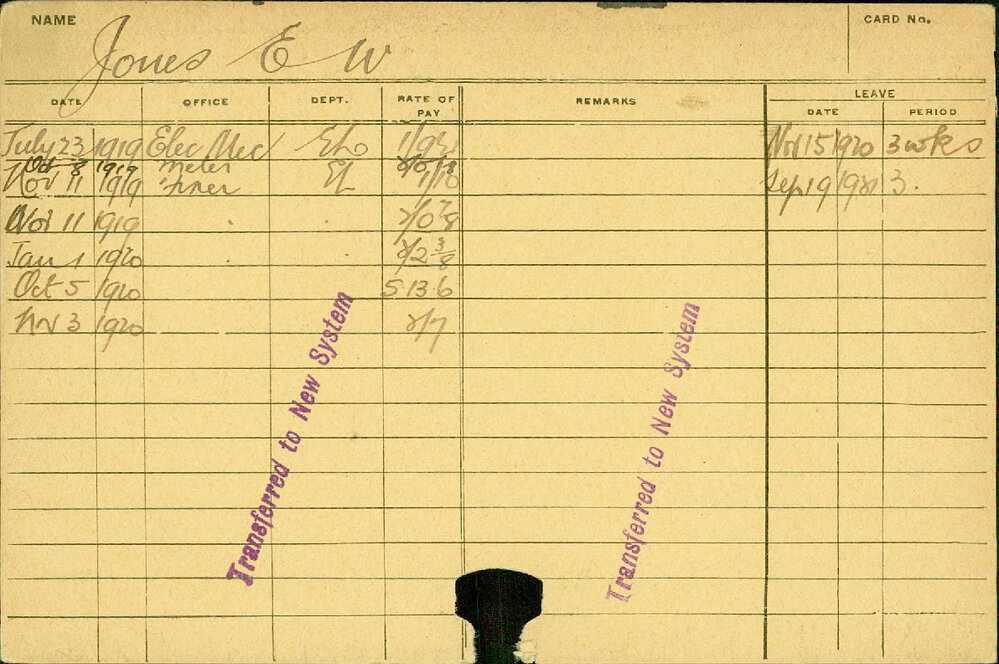 NAME Jones E W CARD No.
DATE OFFICE DEPT. RATE OF PAY REMARKS LEAVE
DATE PERIOD
July 23 1919 Elec Mec EL Nov 15 1920 3 wks
Oct 8 1919 Meter
Nov 11 1919 EL 1/10 Sep 19 1921 3.
Nov 11 1919 2/0 7/8
Jan 1 1920 2/2 3/8
Oct 5 1920 5.13.6
Nov 3 1920 2/7
Transferred to New System
Transferred to New System